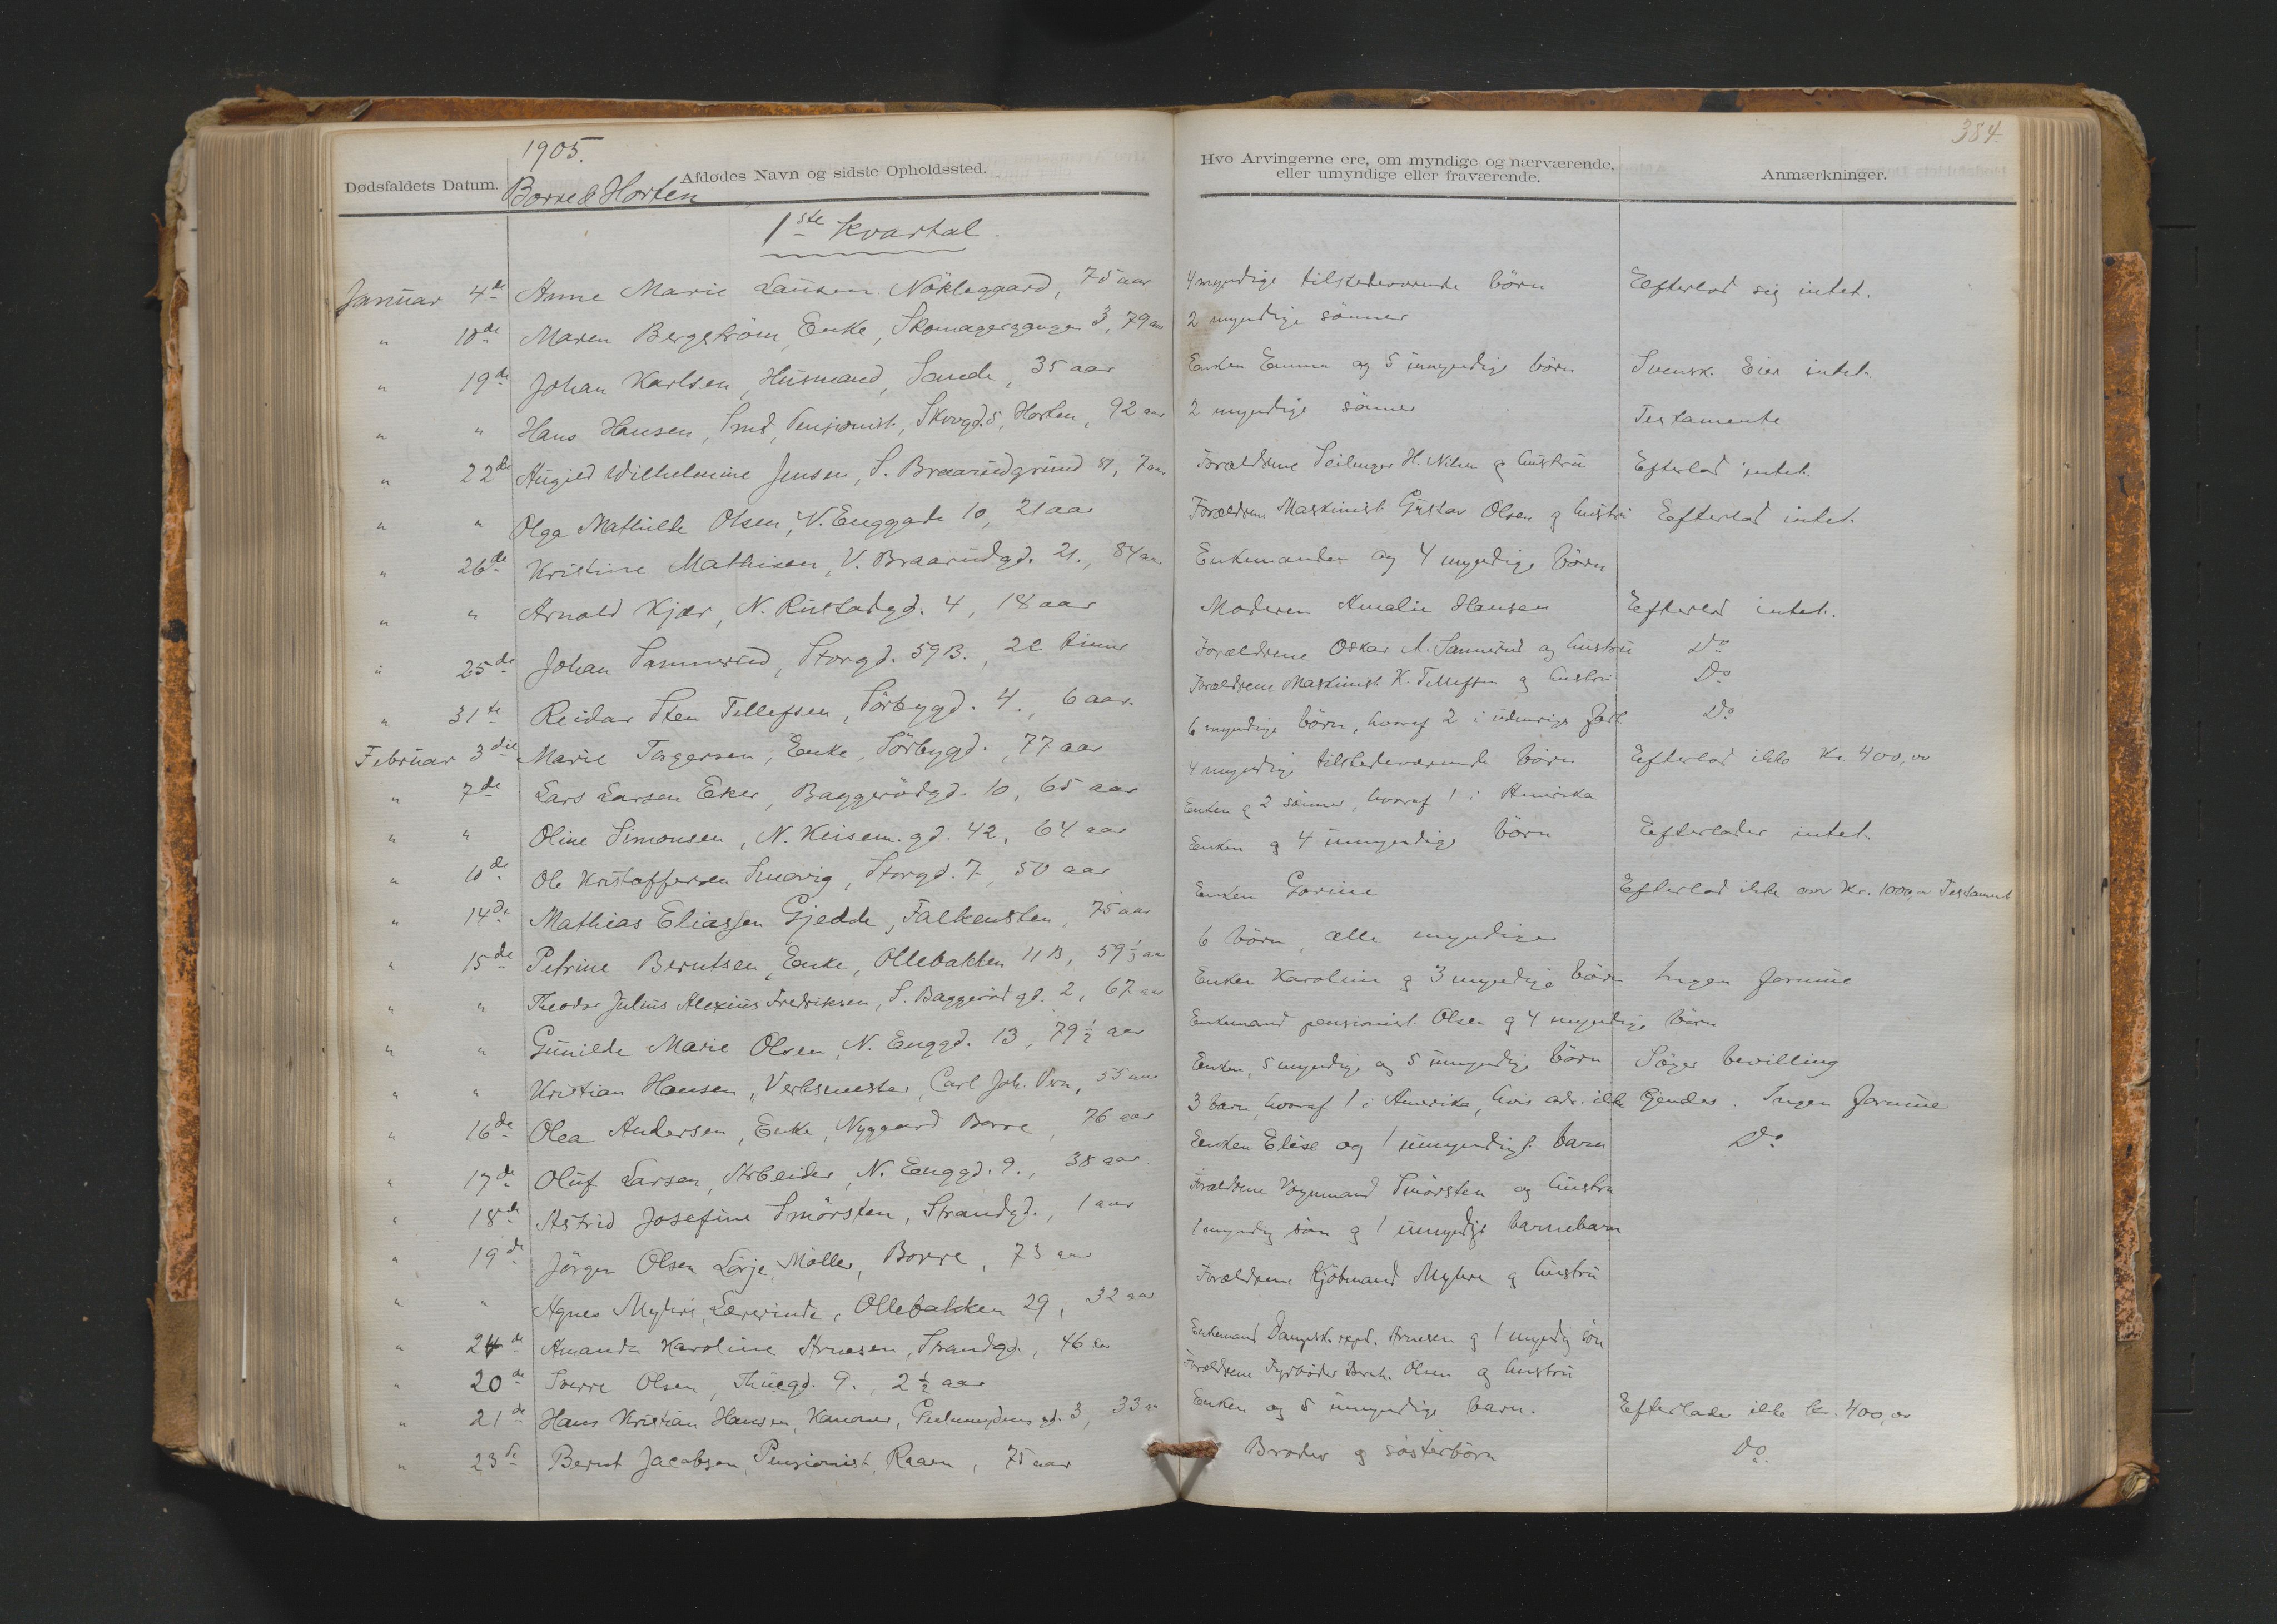 1905.
Dødsfaldets Datum.
Afdødes Navn og sidste Opholdssted.
Borre & Horten
1ste Kvartal
Januar 4de Anne Marie Lausen Nökleggaard, 75 aar
" 10de Maren Bergström, Enke, Skomagergangen 3, 79 aar
" 19de Johan Karlsen, Husmand, Sande, 35 aar
" " Hans Hansen, Smd, Pensionist, Skovgd. 5, Horten, 92 aar
" 22de Wilhelmine Jensen, S. Braarudgrund 7 aar
" " Olga Mathilde Olsen, V. Enggade 10, 21 aar
" 26de Kristine Mathisen, V. Braarudgd. 21., 84 aar
" " Arnold Kjær, N. Rustadgd. 4, 18 aar
" 25de Johan Sannerud, Storgd. 59 B., 22 timer
" 31te Reidar Sten Tellefsen, Sörbygd. 4., 6 aar.
Februar 3die Marie Torgersen, Enke, Sörbygd., 77 aar
" 7de Lars Larsen Eker, Baggerödgd. 10, 65 aar
" " Oline Simonsen, N. Keisem. gd. 42, 64 aar
" 10de Ole Kristoffersen Smörvig, Storgd. 7, 50 aar
" 14de Mathias Eliassen Gjedde, Falkensten, 75 aar
" 15de Petrine Berntsen, Enke, Ollebakken 11 B, 59 1/2 aar
" " Theodor Julius Alexius Fredriksen, S. Baggerödgd. 2, 67 aar
" " Gunilde Marie Olsen, N. Enggd. 13, 79 1/2 aar
" " Kristian Hansen, Verksmester, Carl Joh. Vern, 55 aar
" 16de Olea Andersen, Enke, Nygaard Borre, 76 aar
" 17de Oluf Larsen, Arbeider, N. Enggd. 9., 38 aar
" 18de Astrid Josefine Smörsten, Strandgd., 1 aar
" 19de Jörgen Olsen Lörje, Möller, Borre, 73 aar
" " Agnes Myhre, Lærerinde, Ollebakken 29, 32 aar
" 24de Amanda Karoline Arnesen, Strandgd., 46 aar
" 20de Sverre Olsen, Thuegd. 9., 2 1/2 aar
" 21de Hans Kristian Hansen, Kanoner, gd. 3, 33 aar
" 23de Bernt Jacobsen, Pensionist, Raaen, 75 aar
384.
Hvo Arvingerne ere, om myndige og nærværende,
eller umyndige eller fraværende.
Anmærkninger.
4 myndige tilstedeværende börn Efterlod sig intet.
2 myndige sönner
Enken Emma og 5 umyndige börn Svensk. Eier intet.
2 myndige sönner Testamente
Forældrene Seilmager H. Nilsen og hustru Efterlod intet.
Forældrene Maskinist Gustav Olsen og hustru Efterlod intet.
Enkemanden og 4 myndige börn
Moderen Amalie Hansen Efterlod intet.
Forældrene Oskar A. Sannerud og hustru Do
Forældrene Maskinist K. Tellefsen og hustru Do
6 myndige börn, hvoraf 2 i udenrigs fart Do
4 myndige tilstedeværende börn Efterlod ikke Kr. 400,00
Enken og 2 sönner, hvoraf 1 i Amerika
Enken og 4 umyndige börn Efterlader intet.
Enken Gorine Efterlod ikke over Kr. 1000,00 Testament
6 börn, alle myndige
Enken Karoline og 3 myndige börn Ingen formue
Enkemand pensionist Olsen og 4 myndige börn
Enken, 5 myndige og 5 umyndige börn Söger bevilling
3 barn, hvoraf 1 i Amerika, hvis adr. ikke Gjendes. Ingen formue
Enken Elise og 1 umyndigt barn Do
Forældrene Vognmand Smörsten og hustru
1 myndig sön og 1 umyndigt barnebarn
Forældrene Kjöbmand Myhre og hustru
Enkemand Dampsk. exped. Arnesen og 1 myndig sön
Forældrene Fyrböder Bernh. Olsen og hustru
Enken og 5 umyndige barn. Efterlader ikke kr. 400,00
Broder og sösterbörn Do.